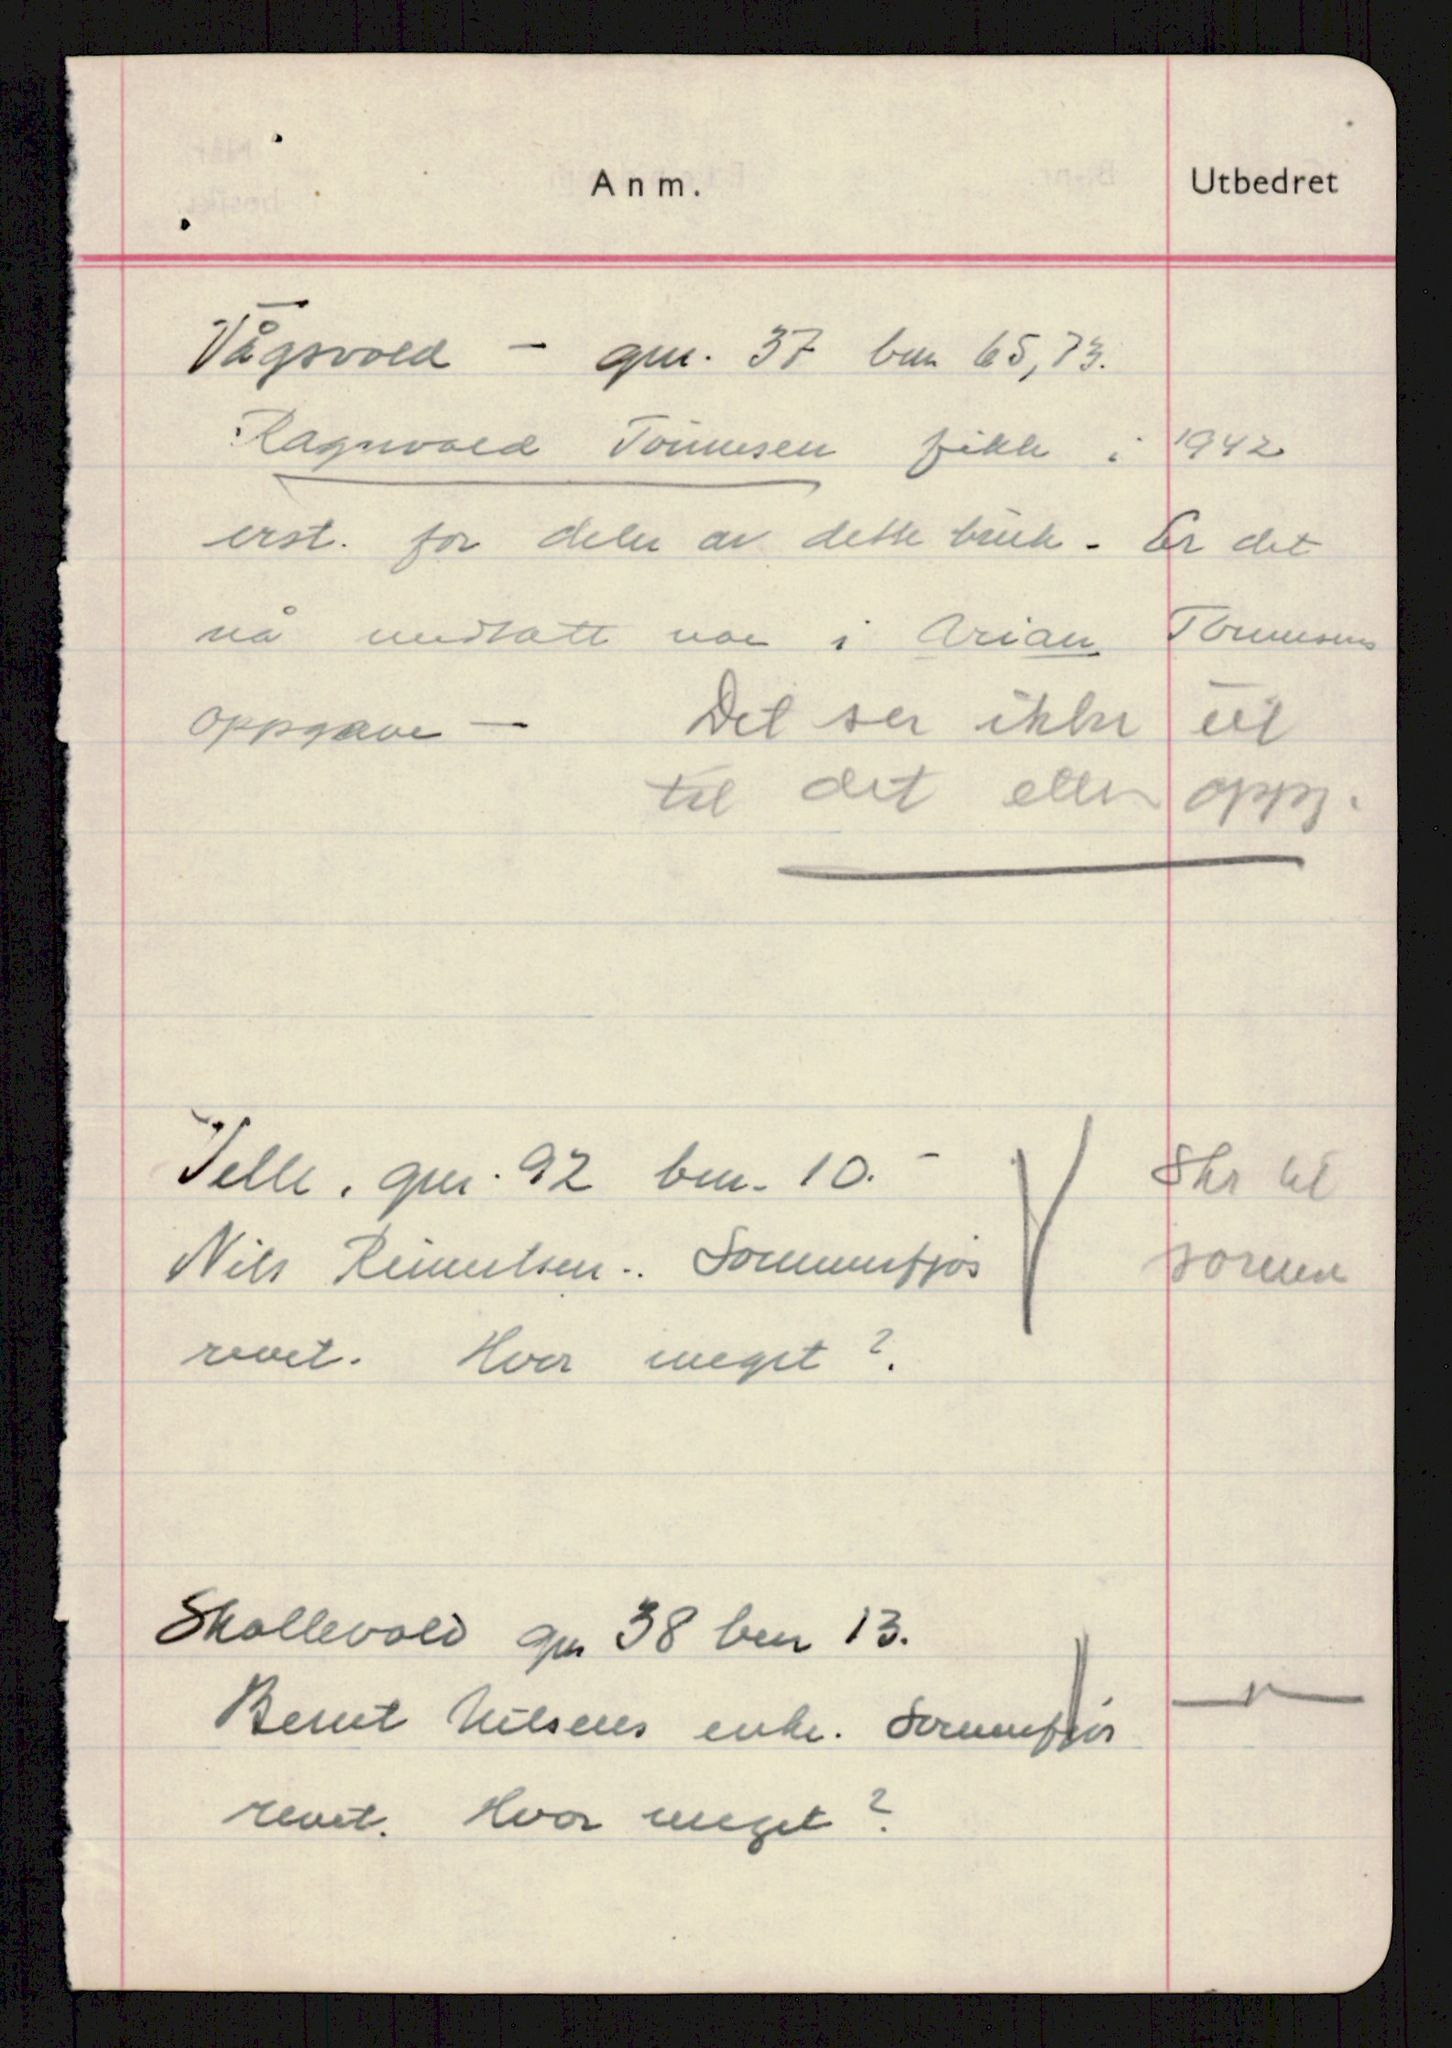 Anm. Utbedret
Vågsvold – gnr. 37 bnr 65,73.
Ragnvald Tönnesen fikk i 1942
erst. for deler av dette bruk - Er det
nå medtatt noe i Arian Tönnesens
oppgave —
Det ser ikke ut
til det etter oppg.
Velle. gnr. 92 bnr. 10. –
Skr til
Nils Reinertsen.. Sommerfjös
revet. Hvor meget?
Skollevold gnr 38 bnr 13.
Bernt Nilsens enke. Sommerfjös
— " —
revet. Hvor meget?